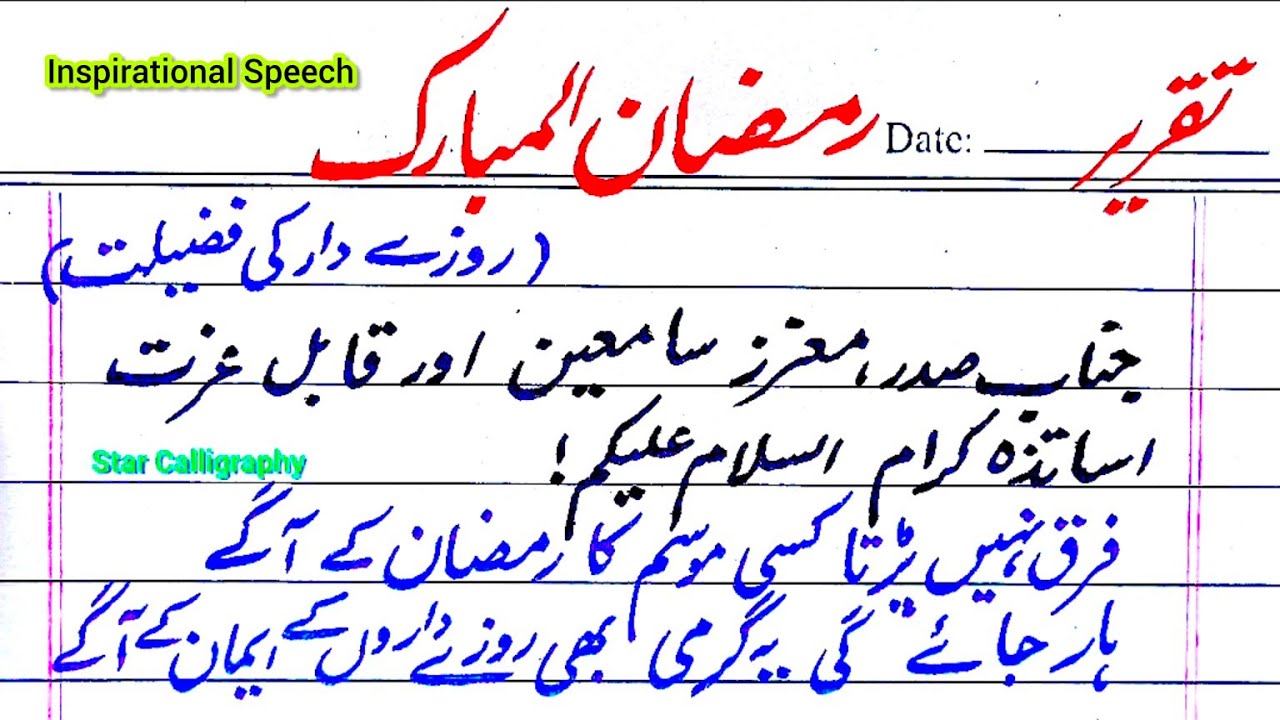 Inspirational Speech
تقریر رمضان المبارک
Date:
(روزے دار کی فضیلت)
جناب صدر، معزز سامعین اور قابل عزت
اساتذہ کرام السلام علیکم!
Star Calligraphy
فرق نہیں پڑتا کسی موسم کا رمضان کے آگے
ہار جائے گی یہ گرمی بھی روزے داروں کے ایمان کے آگے